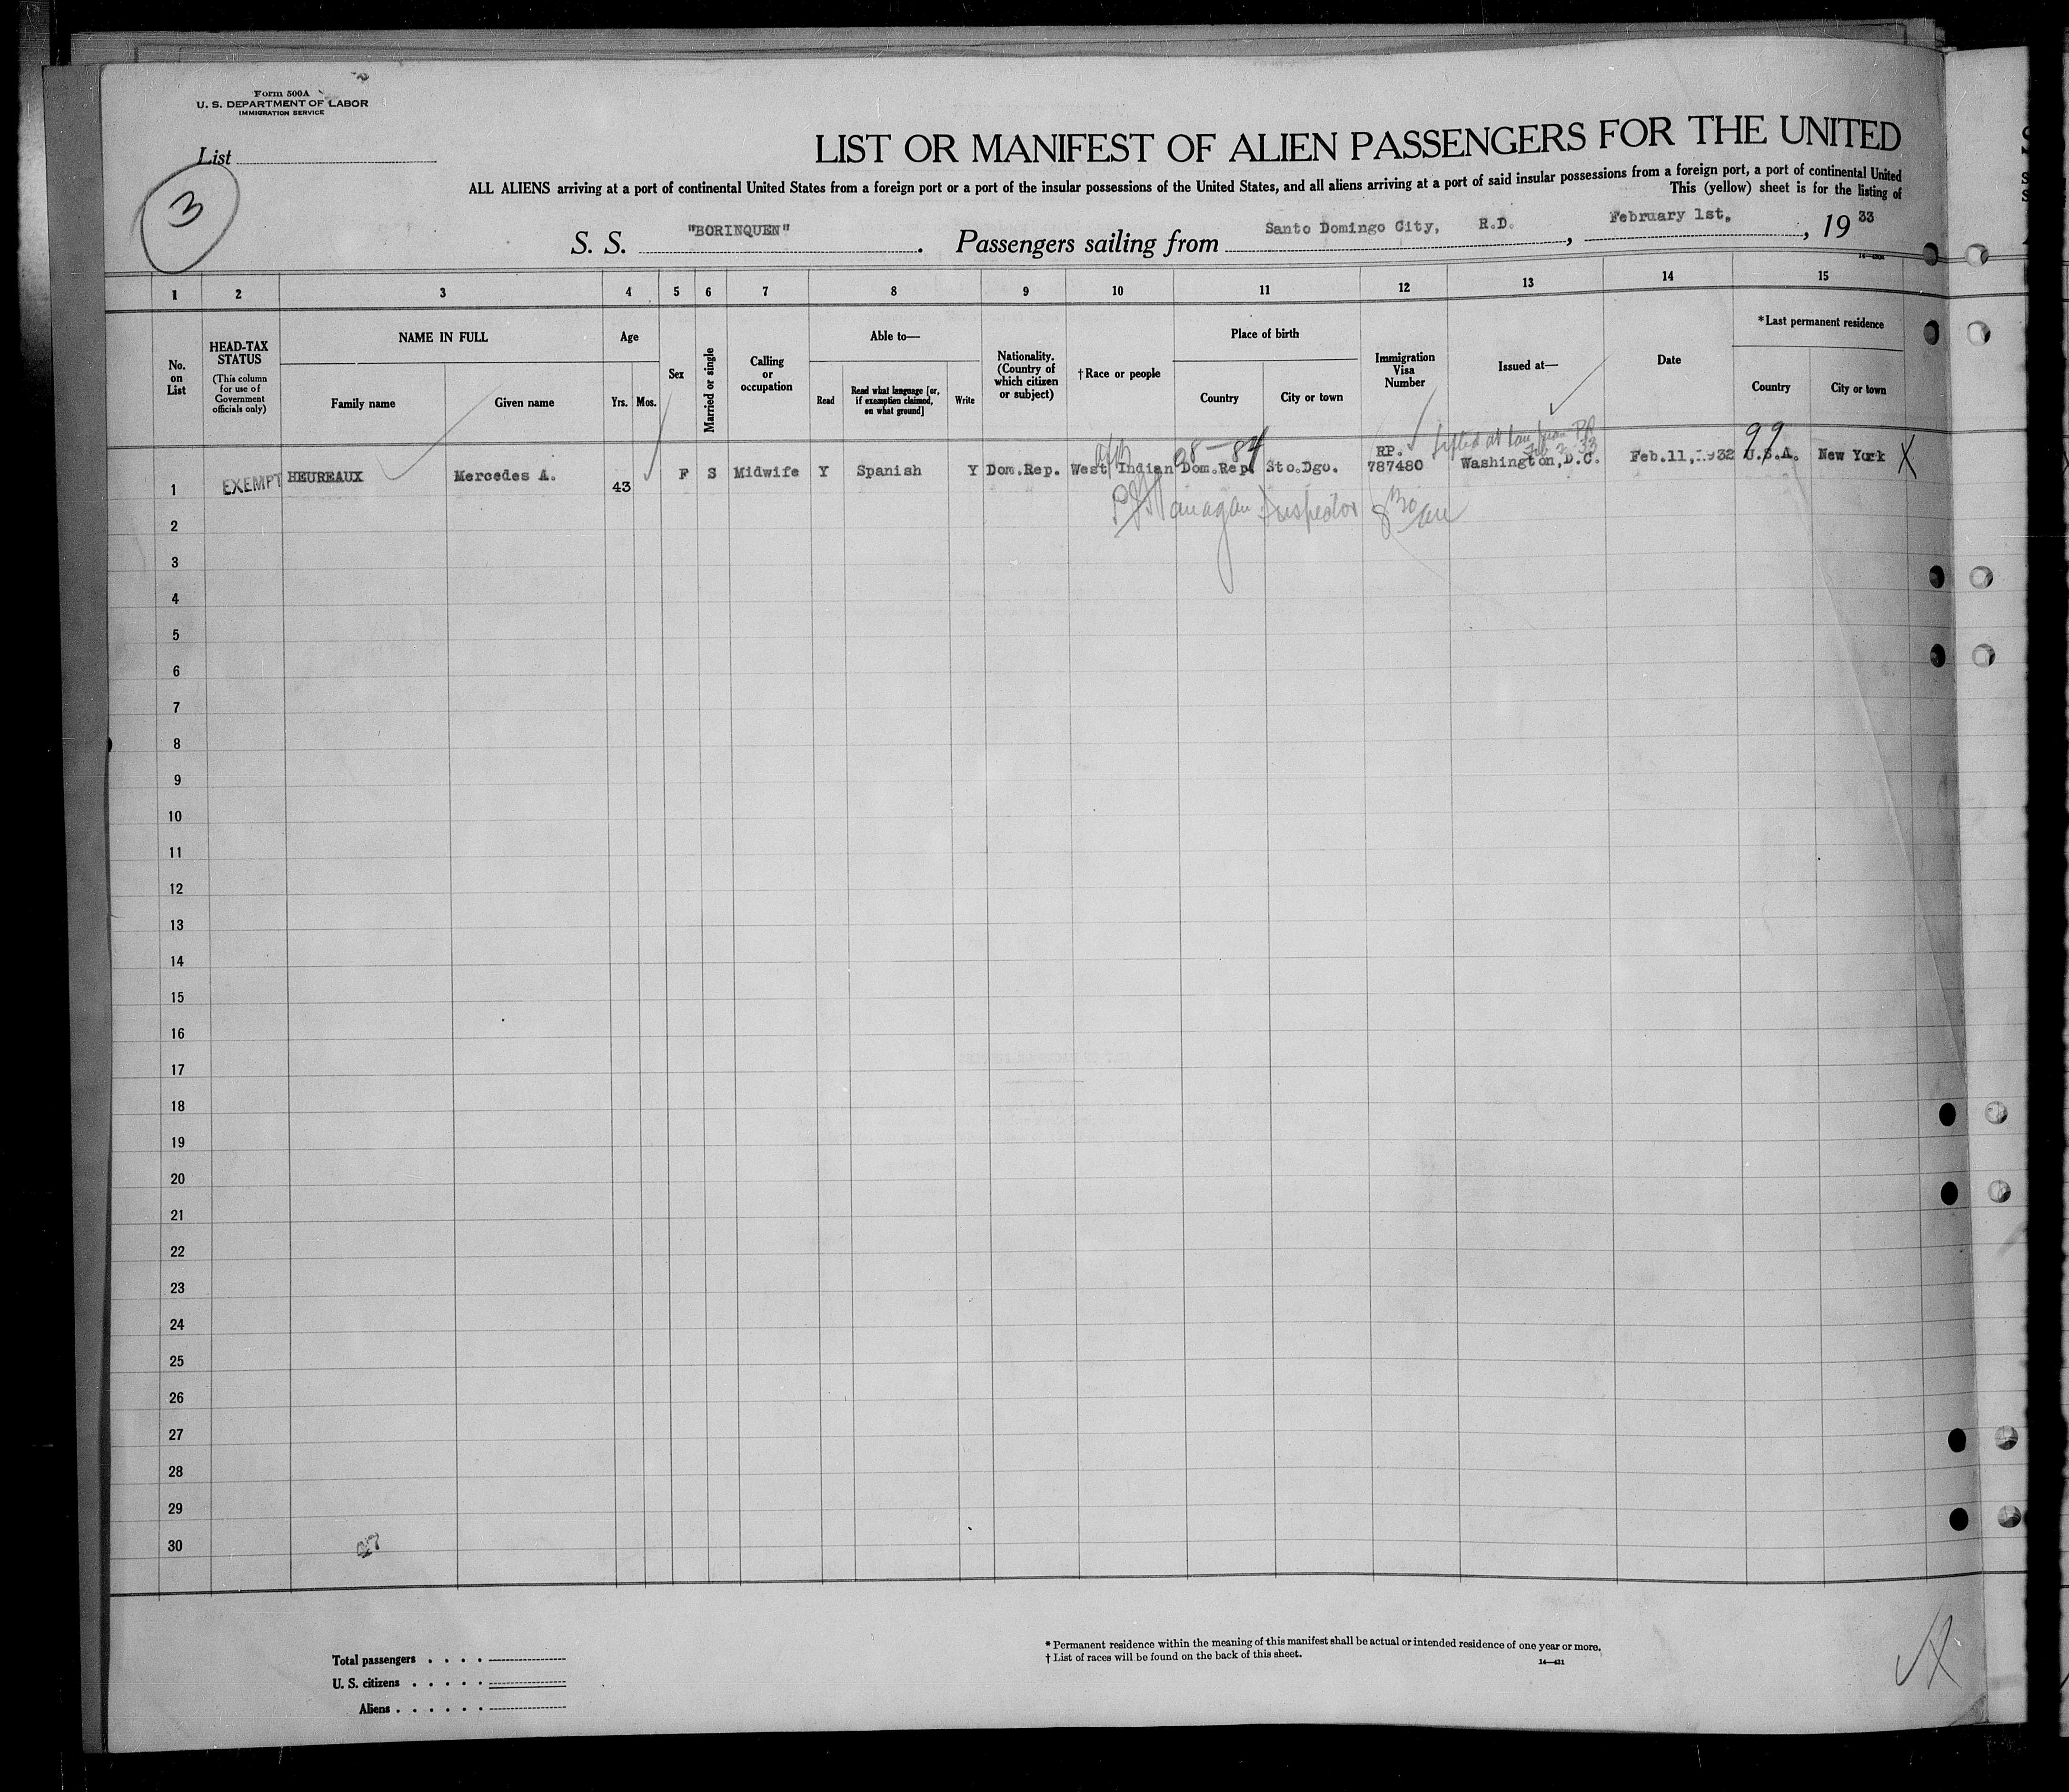 Form 500A
U. S. DEPARTMENT OF LABOR
IMMIGRATION SERVICE
List
3
LIST OR MANIFEST OF ALIEN PASSENGERS FOR THE UNITED
ALL ALIENS arriving at a port of continental United States from a foreign port or a port of the insular possessions of the United States, and all aliens arriving at a port of said insular possessions from a foreign port, a port of continental United
This (yellow) sheet is for the listing of
S. S. "BORINQUEN". Passengers sailing from Santo Domingo City, R.D., February 1st., 1933
1 2 3 4 5 6 7 8 9 10 11 12 13 14 15
No. on List
HEAD-TAX STATUS
(This column for use of Government officials only)
NAME IN FULL
Family name
Given name
Age
Yrs. Mos.
Sex
Married or single
Calling or occupation
Able to—
Read
Read what language [or, if exemption claimed, on what ground]
Write
Nationality. (Country of which citizen or subject)
†Race or people
Place of birth
Country
City or town
Immigration Visa Number
Issued at—
Date
*Last permanent residence
Country
City or town
98-84
99
Lifted at San Juan PR
Feb 2 33
1 EXEMPT HEUREAUX Mercedes A. 43 F S Midwife Y Spanish Y Dom.Rep. West Indian Dom.Rep. Sto.Dgo. RP. 787480 Washington,D.C. Feb.11,1932 U.S.A. New York X
Inspector
2
3
4
5
6
7
8
9
10
11
12
13
14
15
16
17
18
19
20
21
22
23
24
25
26
27
28
29
30
Total passengers . . . .
U. S. citizens . . . . .
Aliens . . . . . .
* Permanent residence within the meaning of this manifest shall be actual or intended residence of one year or more.
† List of races will be found on the back of this sheet.